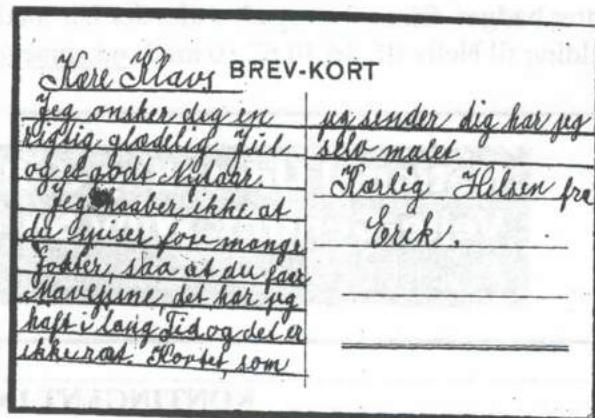 Kære Klavs
BREV-KORT
Jeg ønsker dig en
rigtig glædelig Jul
og et godt Nytaar.
Jeg haaber ikke at
du spiser for mange
Godter, saa at du faar
Mavepine, det har jeg
haft i lang Tid og det er
ikke rart. Kortet, som
jeg sender dig har jeg
selv malet
Kærlig Hilsen fra
Erik.
KONTINGENT